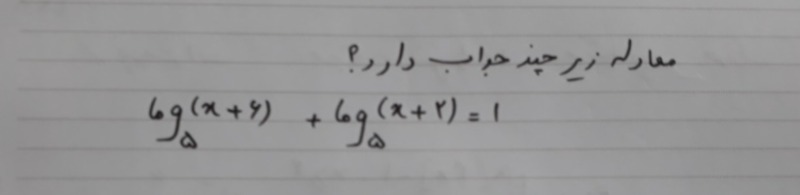 معادله زیر چند جواب دارد؟
log₅(x+۶) + log₅(x+۲) = ۱